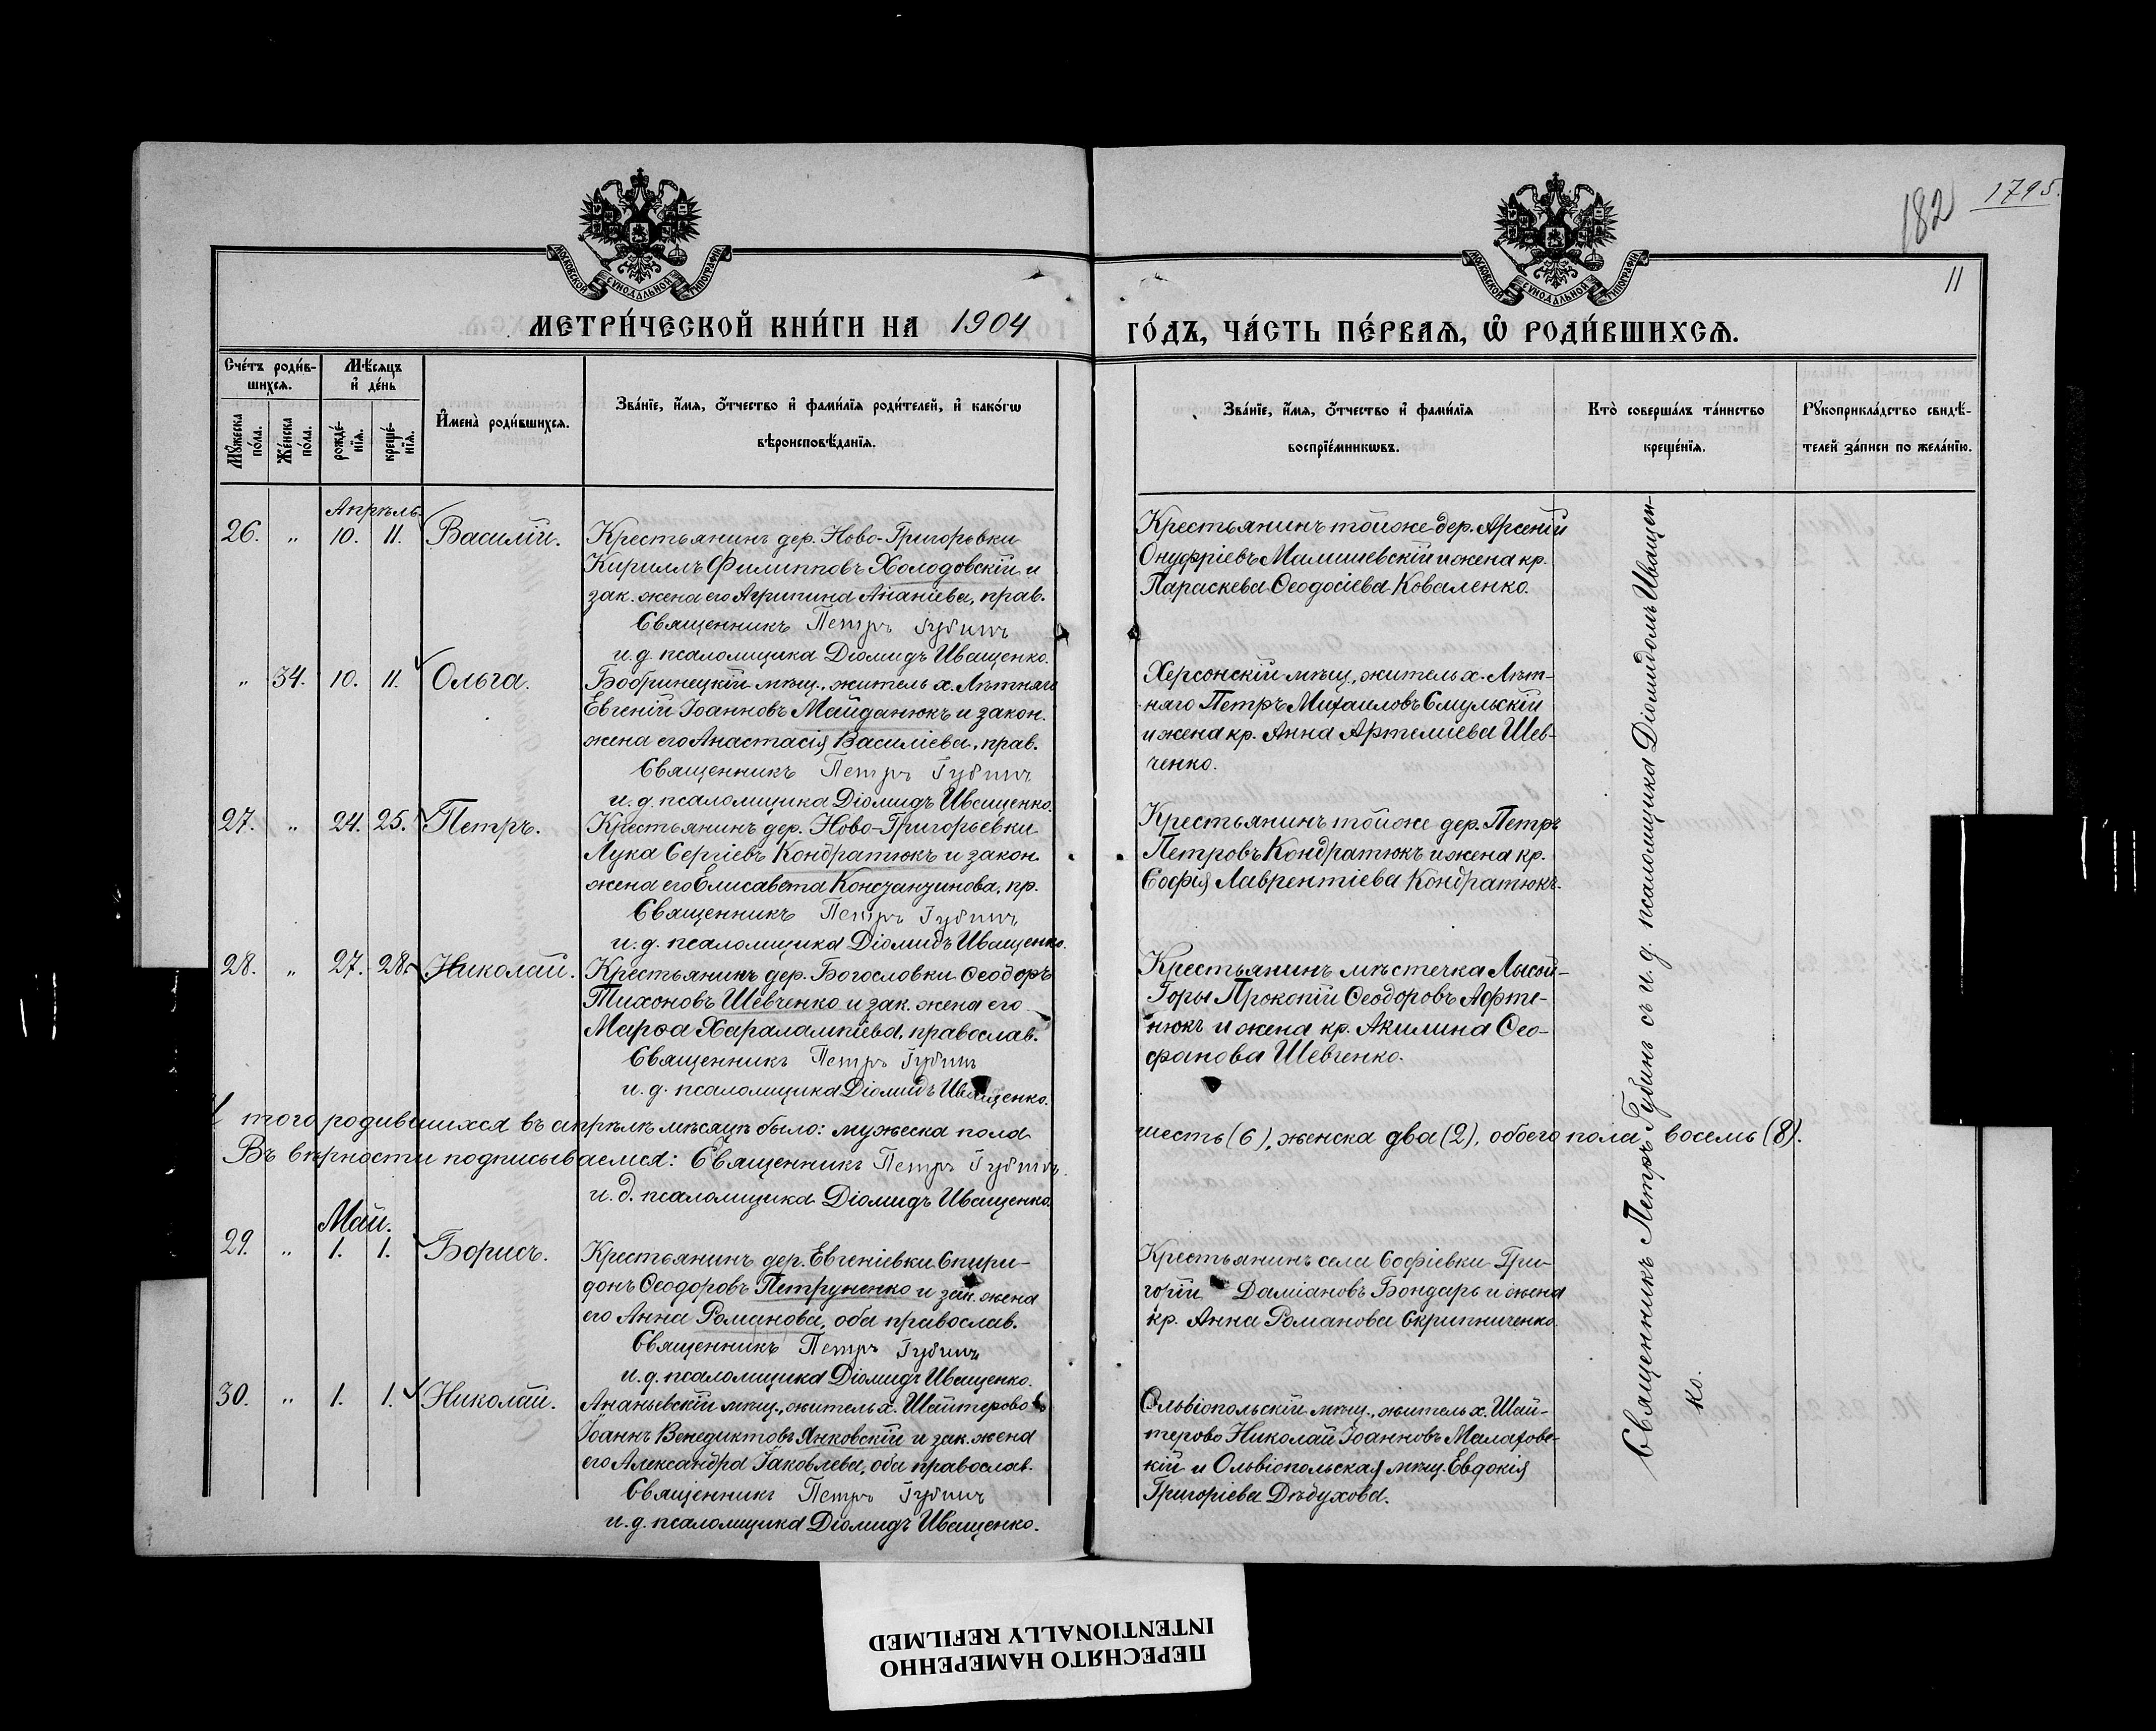 182
1795.
11
МОСКОВСКОЙ СѴНОДАЛЬНОЙ ТИПОГРАФІИ
МОСКОВСКОЙ СѴНОДАЛЬНОЙ ТИПОГРАФІИ
МЕТРИ́ЧЕСКОЙ КНИ́ГИ НА 1904
ГО́ДЪ, ЧА́СТЬ ПЕ́РВАѦ, Ѡ҆ РОДИ́ВШИХСѦ.
Сче́тъ роди́в-
шихсѧ.
Мѣ́сѧцъ
и҆ де́нь
Мꙋ́жеска
по́ла.
Же́нска
по́ла.
рожде́-
нїѧ.
креще́-
нїѧ.
И҆мена̀ роди́вшихсѧ.
Зва́нїе, и҆́мѧ, ѻ҆́тчество и҆ фами́лїѧ роди́телей, и҆ како́гѡ
вѣроисповѣ́данїѧ.
Зва́нїе, и҆́мѧ, ѻ҆́тчество и҆ фами́лїѧ
воспрїе́мникѡвъ.
Кто̀ соверша́лъ та́инство
креще́нїѧ.
Рꙋкоприкла́дство свидѣ́-
телей за́писи по жела́нїю.
Апрѣль.
26. „ 10. 11. Василій. Крестьянинъ дер. Ново-Григорьвки
Кириллъ Филипповъ Холодовскій и
зак. жена его Агрипина Ананіева, прав.
Священникъ Петръ Губинъ
и. д. псаломщика Діомидъ Иващенко.
Крестьянинъ тойже дер. Арсеній
Онуфріевъ Малишевскій и жена кр.
Параскева Ѳеодосіева Коваленко.
„ 34. 10. 11. Ольга. Бобринецкій мѣщ., житель х. Лѣтняго
Евгеній Іоанновъ Майданюкъ и закон.
жена его Анастасія Василіева, прав.
Священникъ Петръ Губинъ
и. д. псаломщика Діомидъ Иващенко.
Херсонскій мѣщ., житель х. Лѣт-
няго Петръ Михаиловъ Смульскій
и жена кр. Анна Артеміева Шев-
ченко.
27. „ 24. 25. Петръ. Крестьянинъ дер. Ново-Григорьевки
Лука Сергіевъ Кондратюкъ и закон.
жена его Елисавета Констант͏инова, пр.
Священникъ Петръ Губинъ
и. д. псаломщика Діомидъ Иващенко.
Крестьянинъ тойже дер. Петръ
Петровъ Кондратюкъ и жена кр.
Софія Лаврентіева Кондратюкъ.
28. „ 27. 28. Николай. Крестьянинъ дер. Богословки Ѳеодоръ
Тихоновъ Шевченко и зак. жена его
Марѳа Харалампіева, православ.
Священникъ Петръ Губинъ
и. д. псаломщика Діомидъ Иващенко.
Крестьянинъ мѣстечка Лысой-
Горы Прокопій Ѳеодоровъ Афте-
нюкъ и жена кр. Акилина Ѳео-
фанова Шевченко.
Итого родившихся въ апрѣлѣ мѣсяцѣ было: мужеска пола
шесть (6), женска два (2), обоего пола восемь (8).
Въ вѣрности подписываемся: Священникъ Петръ Губинъ.
и. д. псаломщика Діомидъ Иващенко.
Май.
29. „ 1. 1. Борисъ. Крестьянинъ дер. Евгеніевки Спири-
донъ Ѳеодоровъ Петруненко и зак. жена
его Анна Романова, оба православ.
Священникъ Петръ Губинъ
и. д. псаломщика Діомидъ Иващенко.
Крестьянинъ села Софіевки Гри-
горій Даміановъ Бондарь и жена
кр. Анна Романова Скрипниченко
30. „ 1. 1. Николай. Ананьевскій мѣщ., житель х. Шайтерово
Іоаннъ Венедиктовъ Янковскій и зак. жена
его Александра Іаковлева, оба православ.
Священникъ Петръ Губинъ
и. д. псаломщика Діомидъ Иващенко.
Ольвіопольскій мѣщ., житель х. Шай-
терово Николай Іоанновъ Малаховс-
кій и Ольвіопольская мѣщ. Евдокія
Григоріева Дѣдухова.
Священникъ Петръ Губинъ съ и. д. псаломщика Діомидомъ Иващен-
ко.
ПЕРЕСНЯТО НАМЕРЕННО
INTENTIONALLY REFILMED